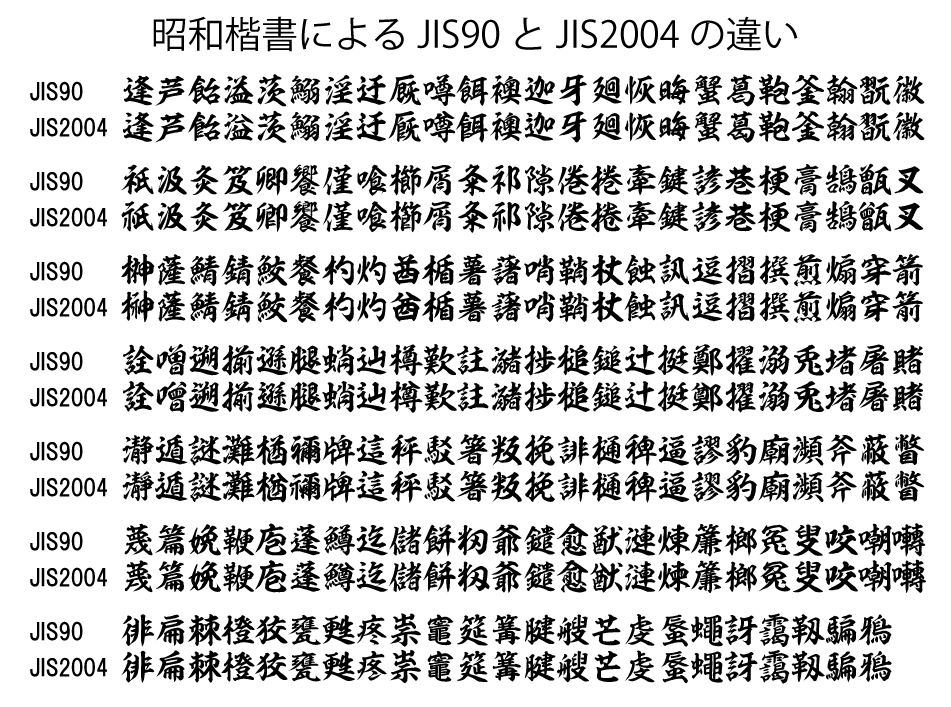 昭和楷書による JIS90 と JIS2004 の違い
JIS90 逢芦飴溢茨鰯淫迂厩噂餌襖迦牙廻恢晦蟹葛鞄釜翰翫徽
JIS2004 逢芦飴溢茨鰯淫迂厩噂餌襖迦牙廻恢晦蟹葛鞄釜翰翫徽
JIS90 祇汲灸笈卿饗僅喰櫛屑粂祁隙倦捲牽鍵諺巷梗膏鵠甑叉
JIS2004 祇汲灸笈卿饗僅喰櫛屑粂祁隙倦捲牽鍵諺巷梗膏鵠甑叉
JIS90 榊薩鯖錆鮫餐杓灼酋楯薯藷哨鞘杖蝕訊逗摺撰煎煽穿箭
JIS2004 榊薩鯖錆鮫餐杓灼酋楯薯藷哨鞘杖蝕訊逗摺撰煎煽穿箭
JIS90 詮噌遡揃遜腿蛸辿樽歎註瀦捗槌鎚辻挺鄭擢溺兎堵屠賭
JIS2004 詮噌遡揃遜腿蛸辿樽歎註瀦捗槌鎚辻挺鄭擢溺兎堵屠賭
JIS90 瀞遁謎灘楢禰牌這秤駁箸叛挽誹樋稗逼謬豹廟瀕斧蔽瞥
JIS2004 瀞遁謎灘楢禰牌這秤駁箸叛挽誹樋稗逼謬豹廟瀕斧蔽瞥
JIS90 蔑篇娩鞭庖蓬鱒迄儲餅籾爺鑓愈猷漣煉簾榔冤叟咬嘲囀
JIS2004 蔑篇娩鞭庖蓬鱒迄儲餅籾爺鑓愈猷漣煉簾榔冤叟咬嘲囀
JIS90 徘扁棘橙狡甕甦疼祟竈筵篝腱艘芒虔蜃蠅訝靄靱騙鴉
JIS2004 徘扁棘橙狡甕甦疼祟竈筵篝腱艘芒虔蜃蠅訝靄靱騙鴉